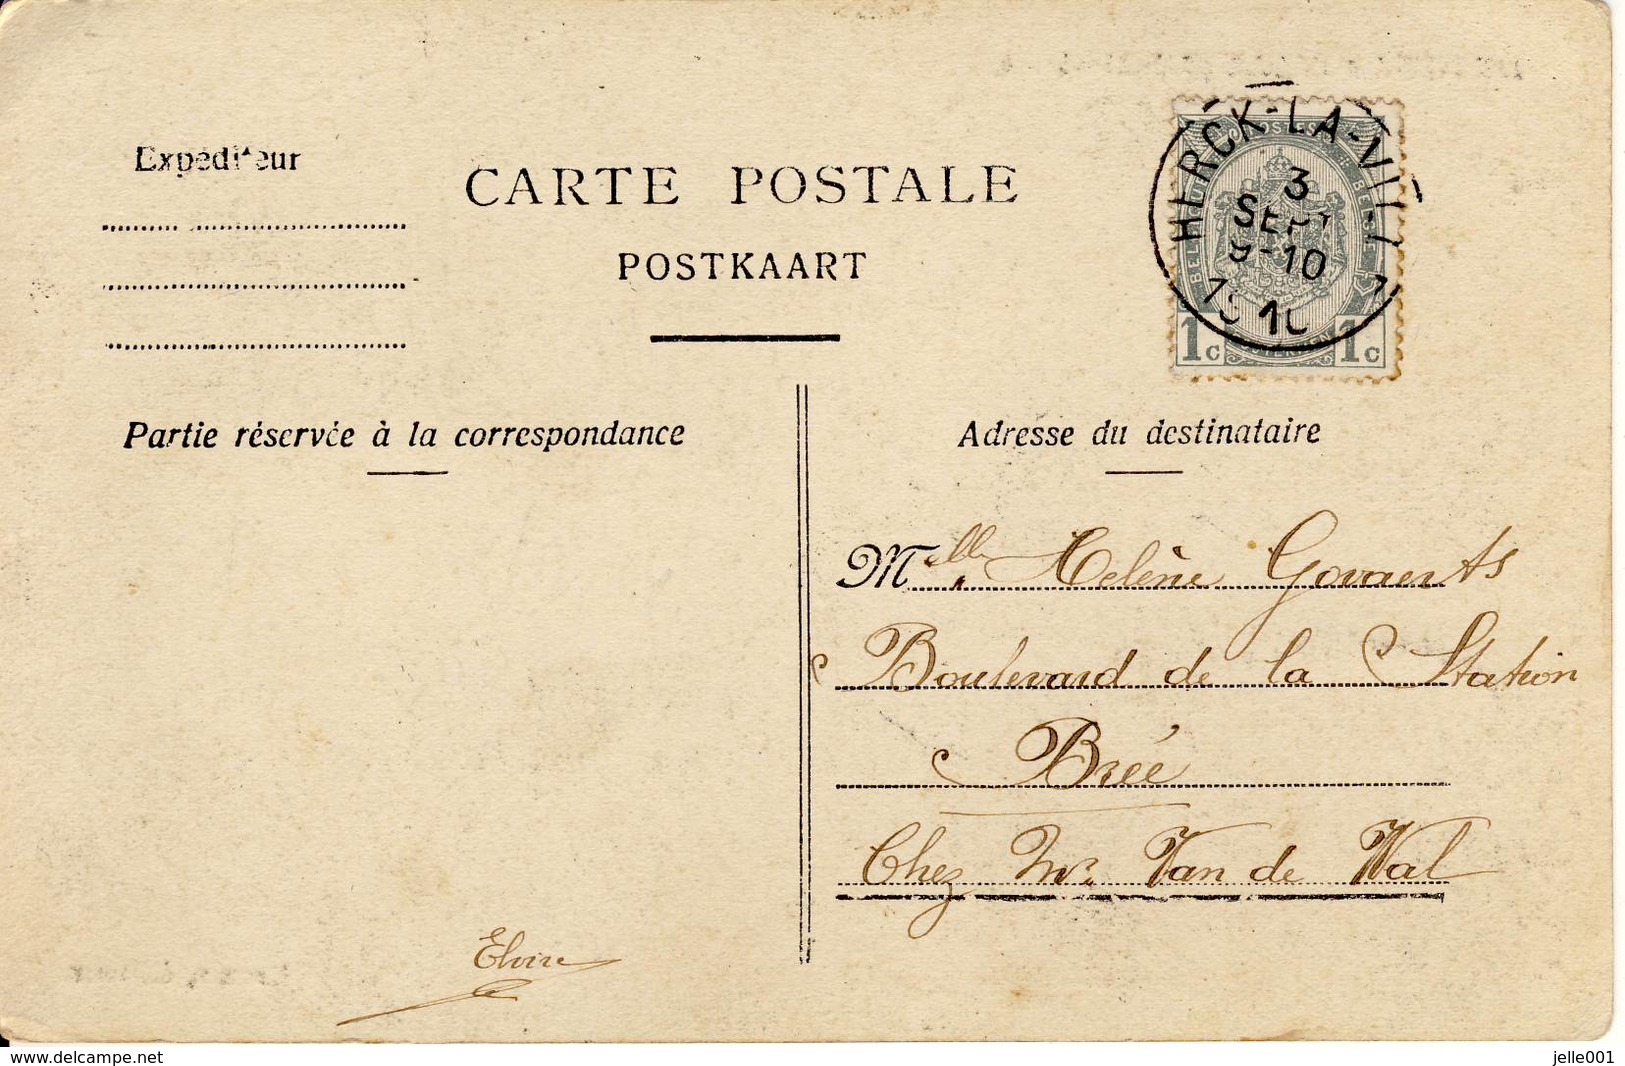 Expéditeur
CARTE POSTALE
POSTKAART
HERCK-LA-VILLE
3
SEPT
9-10
1910
POSTES
BELGIQUE
1c 1c
Partie réservée à la correspondance
Adresse du destinataire
Melle Helène Govaerts
Boulevard de la Station
Brée
Chez Mr. Van de Wal
Elvire
www.delcampe.net
jelle001